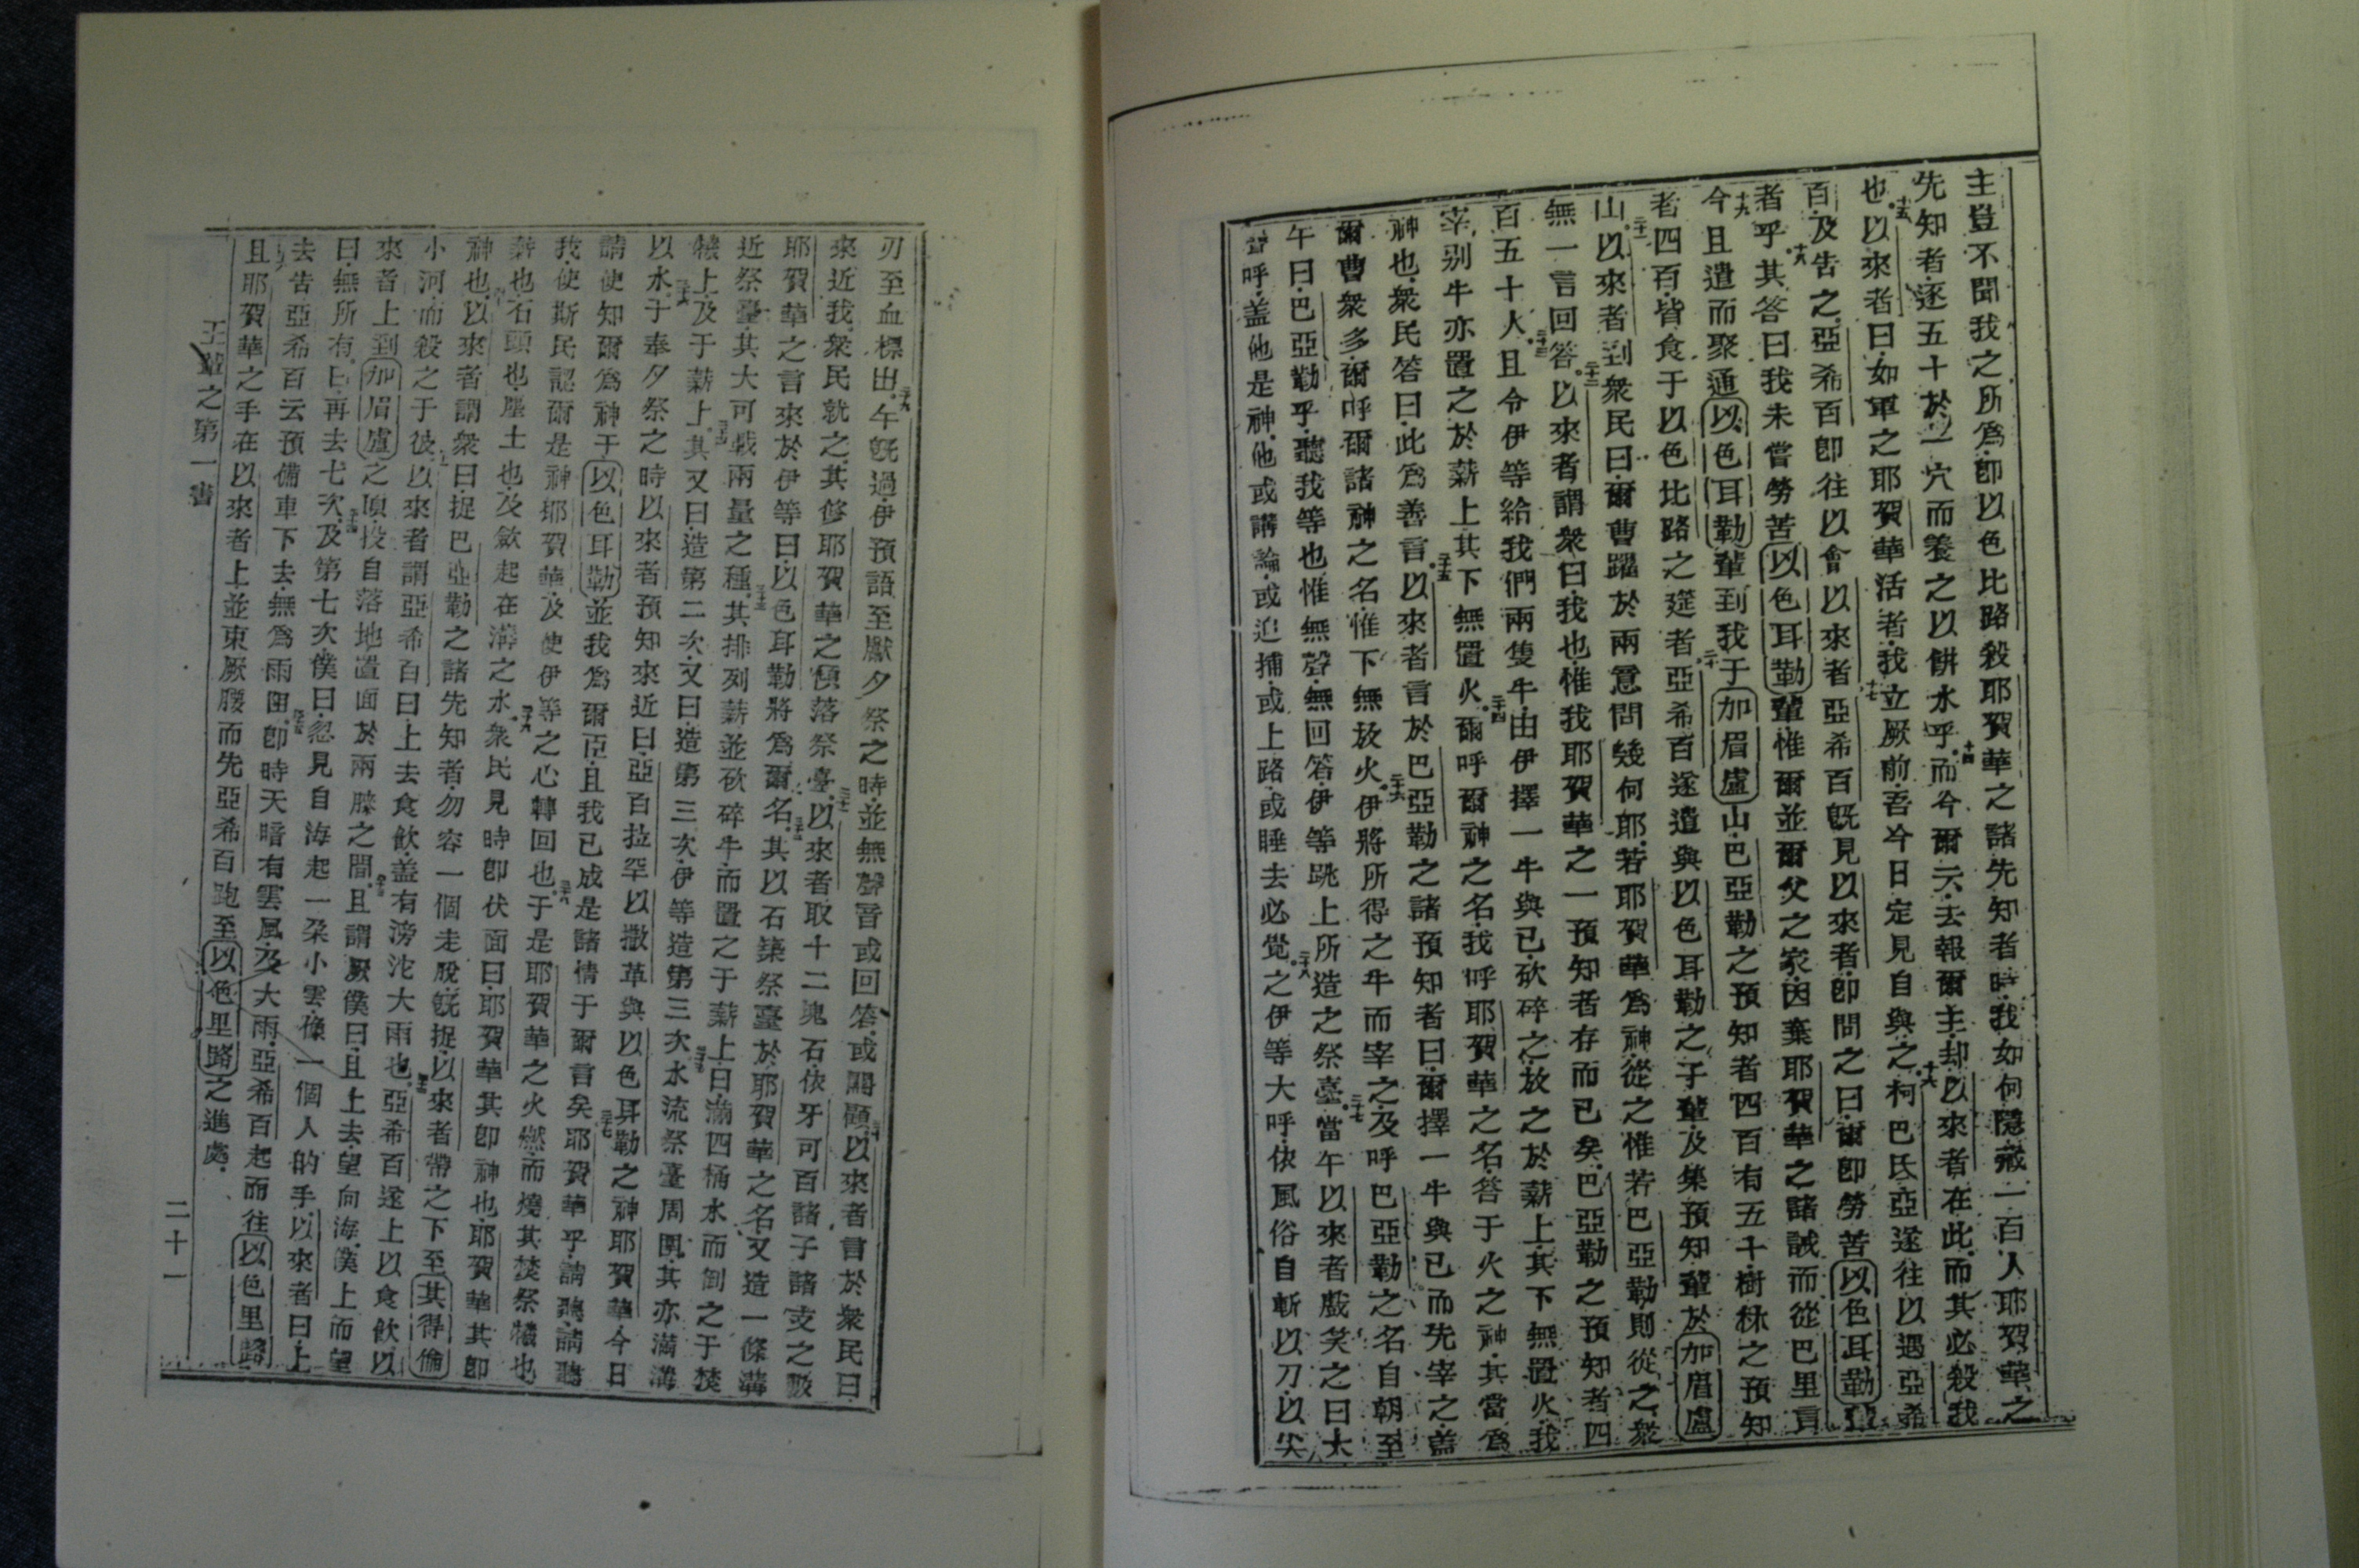 主豈不聞我之所爲卽以色比路殺耶賀華之諸先知者時我如何隱藏一百人耶賀華之
先知者逐五十於一穴而養之以餅水乎十四而今爾云去報爾主却以來者在此而其必殺我
也十五以來者曰如軍之耶賀華活者我立厥前吾今日定見自與之十六柯巴氐亞遂往以遇亞希
百及告之亞希百卽往以會以來者十七亞希百旣見以來者卽問之曰爾卽勞苦以色耳勒輩
者乎十八其答曰我未嘗勞苦以色耳勒輩惟爾並爾父之家因棄耶賀華之諸誡而從巴里亘
十九今且遣而聚通以色耳勒輩到我于加眉盧山巴亞勒之預知者四百有五十樹林之預知
者四百皆食于以色比路之筵者二十亞希百遂遣與以色耳勒之子輩及集預知輩於加眉盧
山二十一以來者到衆民曰爾曹躍於兩意問幾何耶若耶賀華爲神從之惟若巴亞勒則從之衆
無一言回答二十二以來者謂衆曰我也惟我耶賀華之一預知者存而已矣巴亞勒之預知者四
百五十人二十三且令伊等給我們兩隻牛由伊擇一牛與已砍碎之放之於薪上其下無置火我
宰別牛亦置之於薪上其下無置火二十四爾呼爾神之名我呼耶賀華之名答于火之神其當爲
神也衆民答曰此爲善言二十五以來者言於巴亞勒之諸預知者曰爾擇一牛與已而先宰之蓋
爾曹衆多爾呼爾諸神之名惟下無放火二十六伊將所得之牛而宰之及呼巴亞勒之名自朝至
午曰巴亞勒乎聽我等也惟無聲無回答伊等跳上所造之祭臺二十七當午以來者戲笑之曰大
聲呼蓋他是神他或講論或追捕或上路或睡去必覺之二十八伊等大呼依風俗自斬以刀以尖
刃至血標出二十九午旣過伊預語至獻夕祭之時並無聲音或回答或關顧三十以來者言於衆民曰
來近我衆民就之其修耶賀華之傾落祭臺三十一以來者取十二塊石依牙可百諸子諸支之數
耶賀華之言來於伊等曰以色耳勒將爲爾名三十二其以石築祭臺於耶賀華之名又造一條溝
近祭臺其大可載兩量之種三十三其排列薪並砍碎牛而置之于薪上曰滿四桶水而倒之于焚
犧上及于薪上三十四其又曰造第二次又曰造第三次伊等造第三次三十五水流祭臺周圍其亦滿溝
以水三十六于奉夕祭之時以來者預知來近曰亞百拉罕以撒革與以色耳勒之神耶賀華今日
請使知爾爲神于以色耳勒並我爲爾臣且我已成是諸情于爾言矣三十七耶賀華乎請聽請聽
我使斯民認爾是神耶賀華及使伊等之心轉回也三十八于是耶賀華之火燃而燒其焚祭犧也
薪也石頭也塵土也及歛起在溝之水三十九衆民見時卽伏面曰耶賀華其卽神也耶賀華其卽
神也四十以來者謂衆曰捉巴亞勒之諸先知者勿容一個走脫旣捉以來者帶之下至其得倫
小河而殺之于彼四十一以來者謂亞希百曰上去食飲蓋有滂沱大雨也四十二亞希百遂上以食飲以
來者上到加眉盧之頂投自落地置面於兩膝之間四十三且謂厥僕曰且上去望向海僕上而望
曰無所有曰再去七次四十四及第七次僕曰忽見自海起一朶小雲像一個人的手以來者曰上
去告亞希百云預備車下去無爲雨阻四十五卽時天暗有雲風及大雨亞希百起而往以色里路
四十六且耶賀華之手在以來者上並束厥腰而先亞希百跑至以色里路之進處
王輩之第一書
二十一